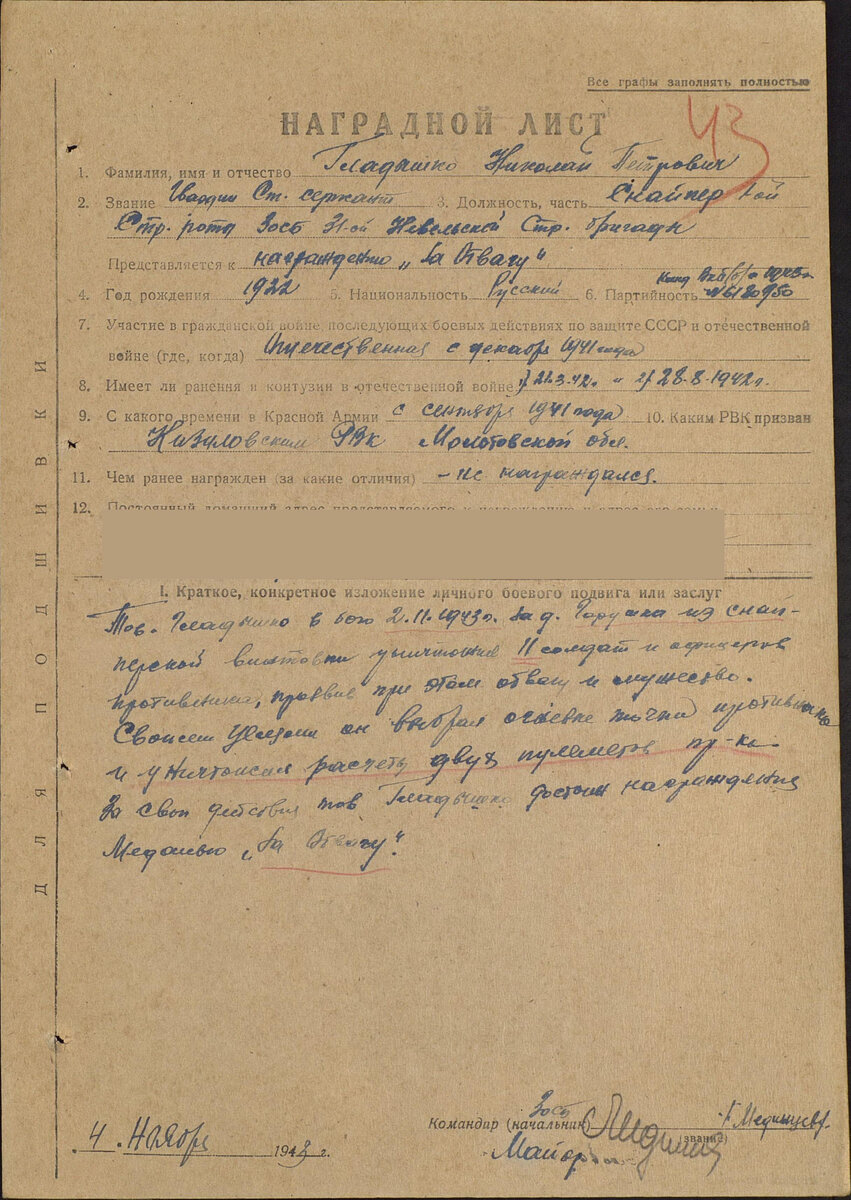 Все графы заполнять полностью
НАГРАДНОЙ ЛИСТ
43
1. Фамилия, имя и отчество Гладышко Николай Петрович
2. Звание Гвардии Ст. сержант 3. Должность, часть Снайпер 1-ой
Стр. роты 3осб 31-ой Невельской Стр. бригады
Представляется к награждению „За Отвагу"
4. Год рождения 1922 5. Национальность Русский 6. Партийность Канд. ВКП(б) с 1943г. №6180950
7. Участие в гражданской войне, последующих боевых действиях по защите СССР и отечественной
войне (где, когда) Отечественная с декабря 1941 года
8. Имеет ли ранения и контузии в отечественной войне 1) 21.3.42г. и 2) 28.8.1942г.
9. С какого времени в Красной Армии с сентября 1941 года 10. Каким РВК призван
РВК Молотовской обл.
11. Чем ранее награжден (за какие отличия) – не награждался.
12. Постоянный домашний адрес представляемого к награждению и адрес его семьи
I. Краткое, конкретное изложение личного боевого подвига или заслуг
Тов. Гладышко в бою 2.11.1943г. за д. Горушка из снай-
перской винтовки уничтожил 11 солдат и офицеров
противника, проявив при этом отвагу и мужество.
Своисем он выбрал огневые точки противника
и уничтожил расчеты двух пулеметов пр-ка.
За свои действия тов Гладышко достоин награждения
Медалью „За Отвагу".
ДЛЯ ПОДШИВКИ
Командир (начальник) 3осб
Майор
(звание)
4. Ноября 1943 г.